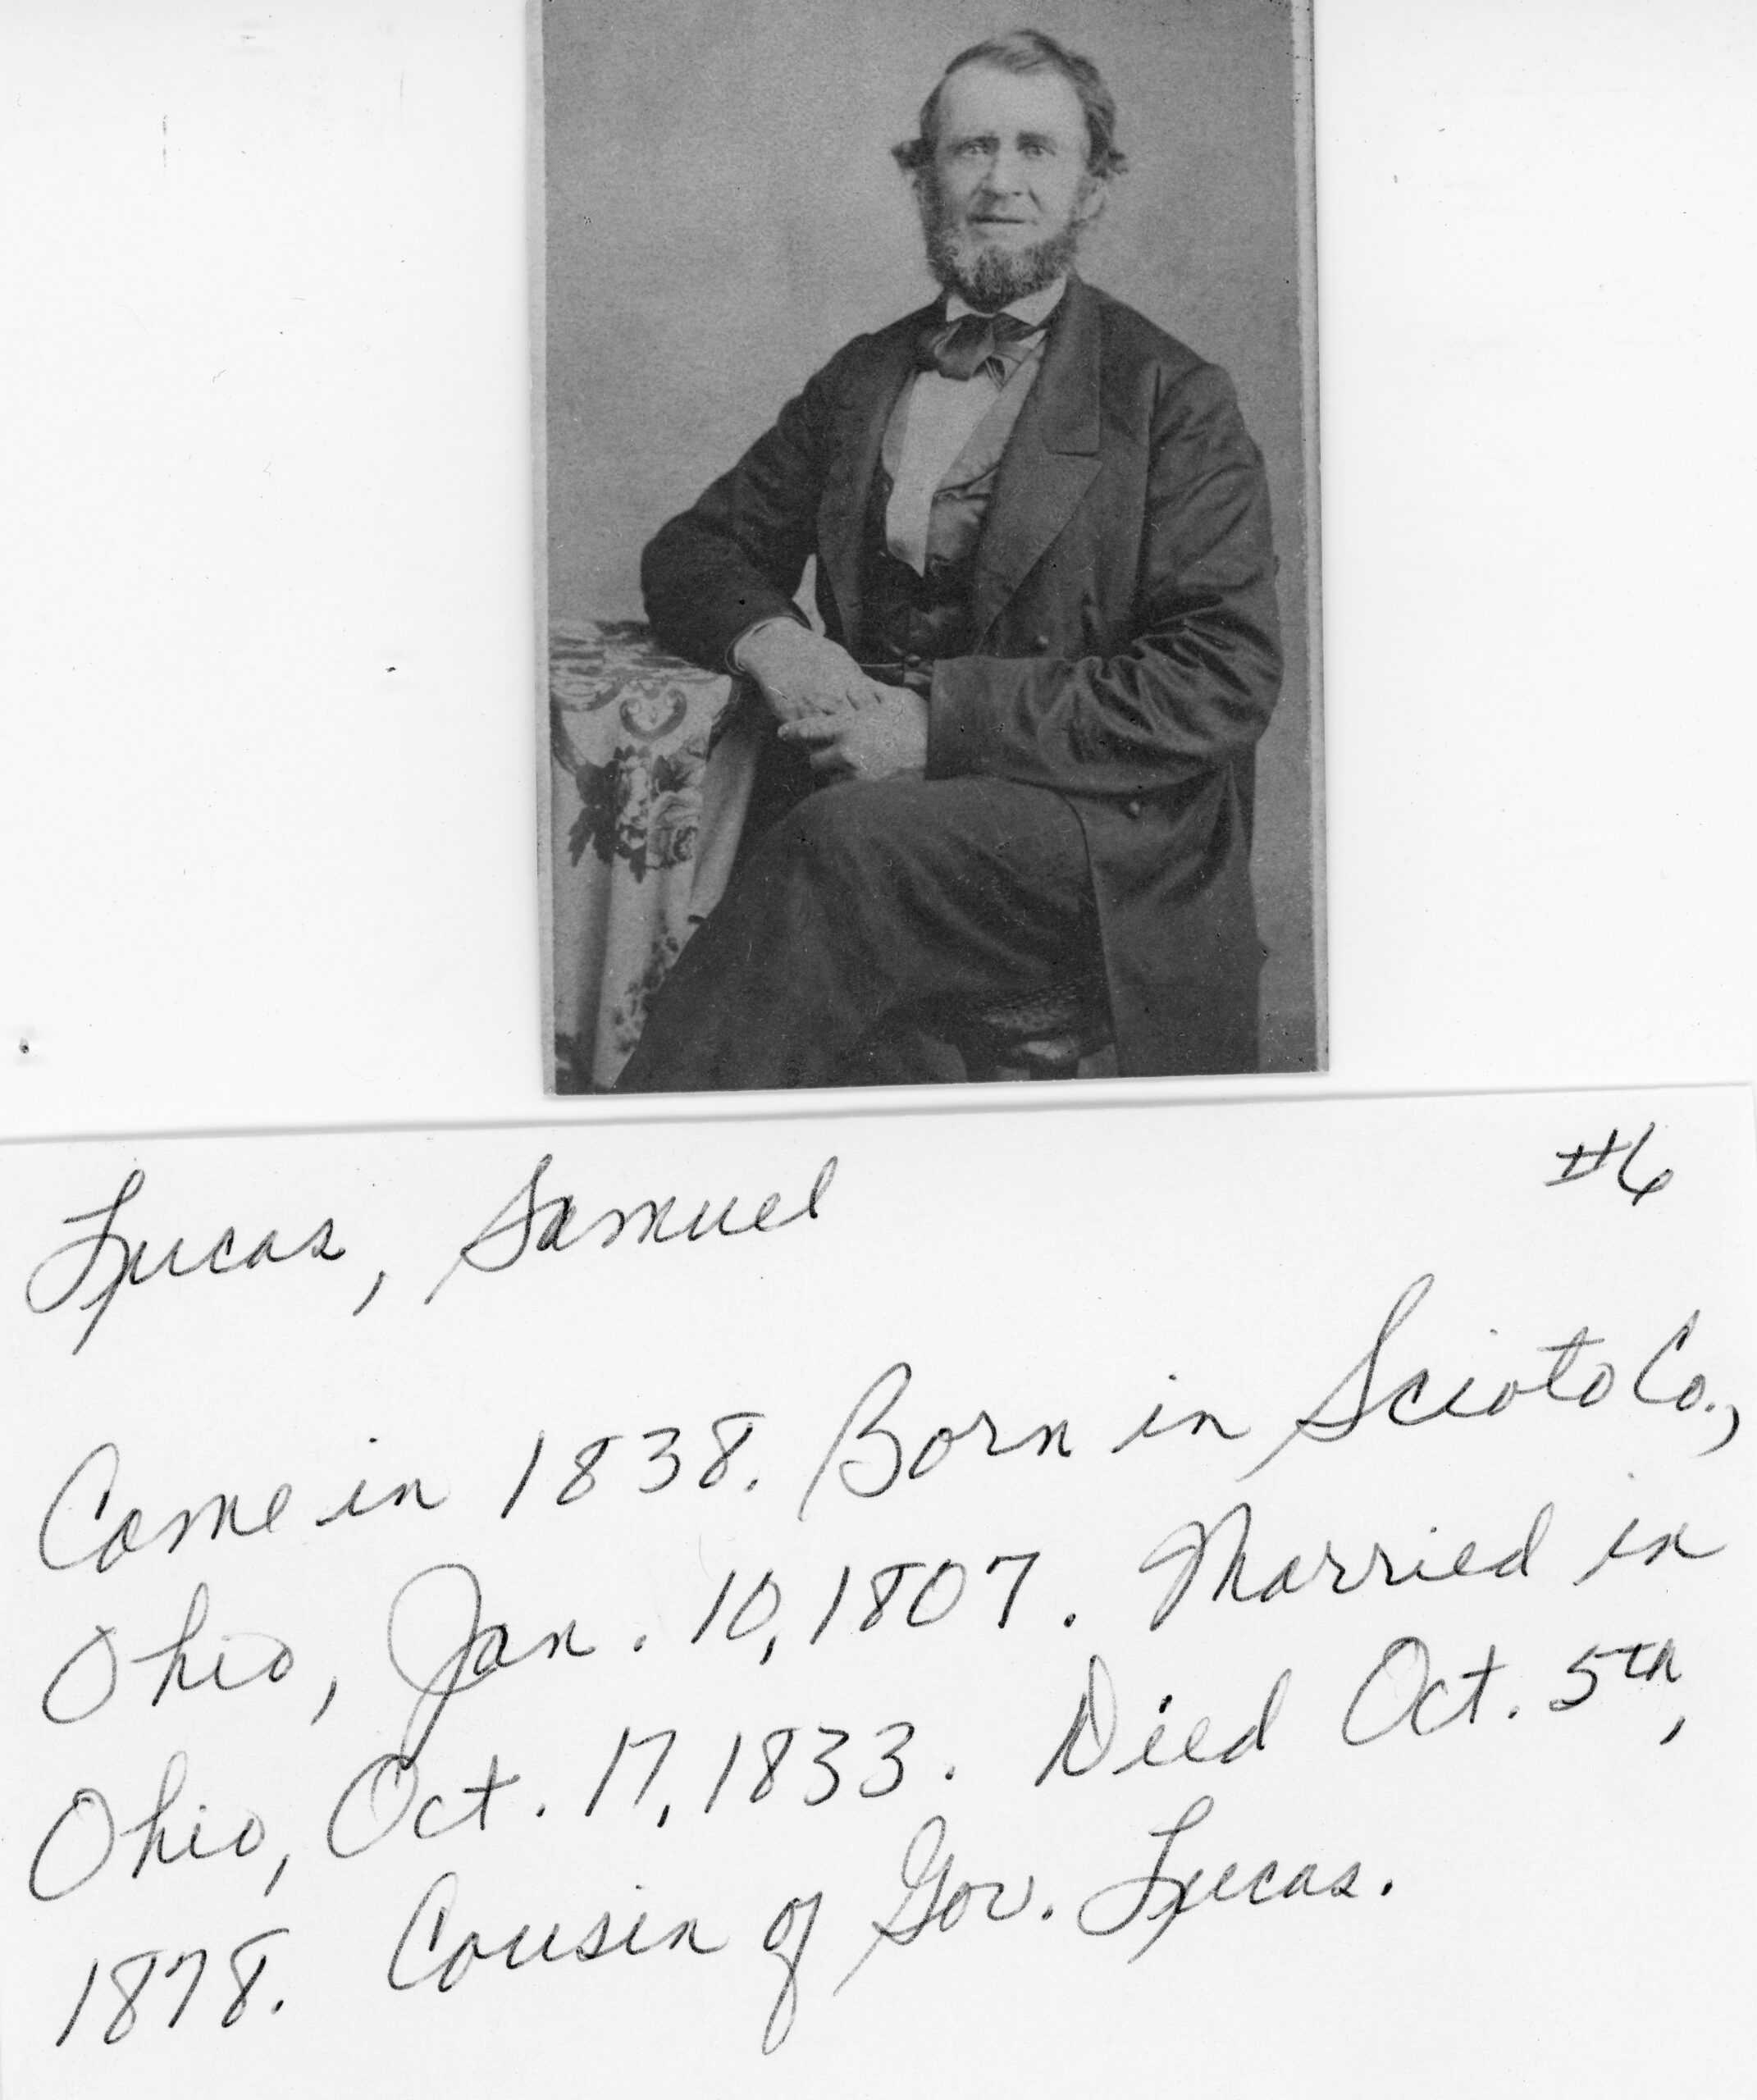 Lucas, Samuel #6
Came in 1838. Born in Scioto Co.,
Ohio, Jan. 10, 1807. Married in
Ohio, Oct. 17, 1833. Died Oct. 5th,
1878. Cousin of Gov. Lucas.